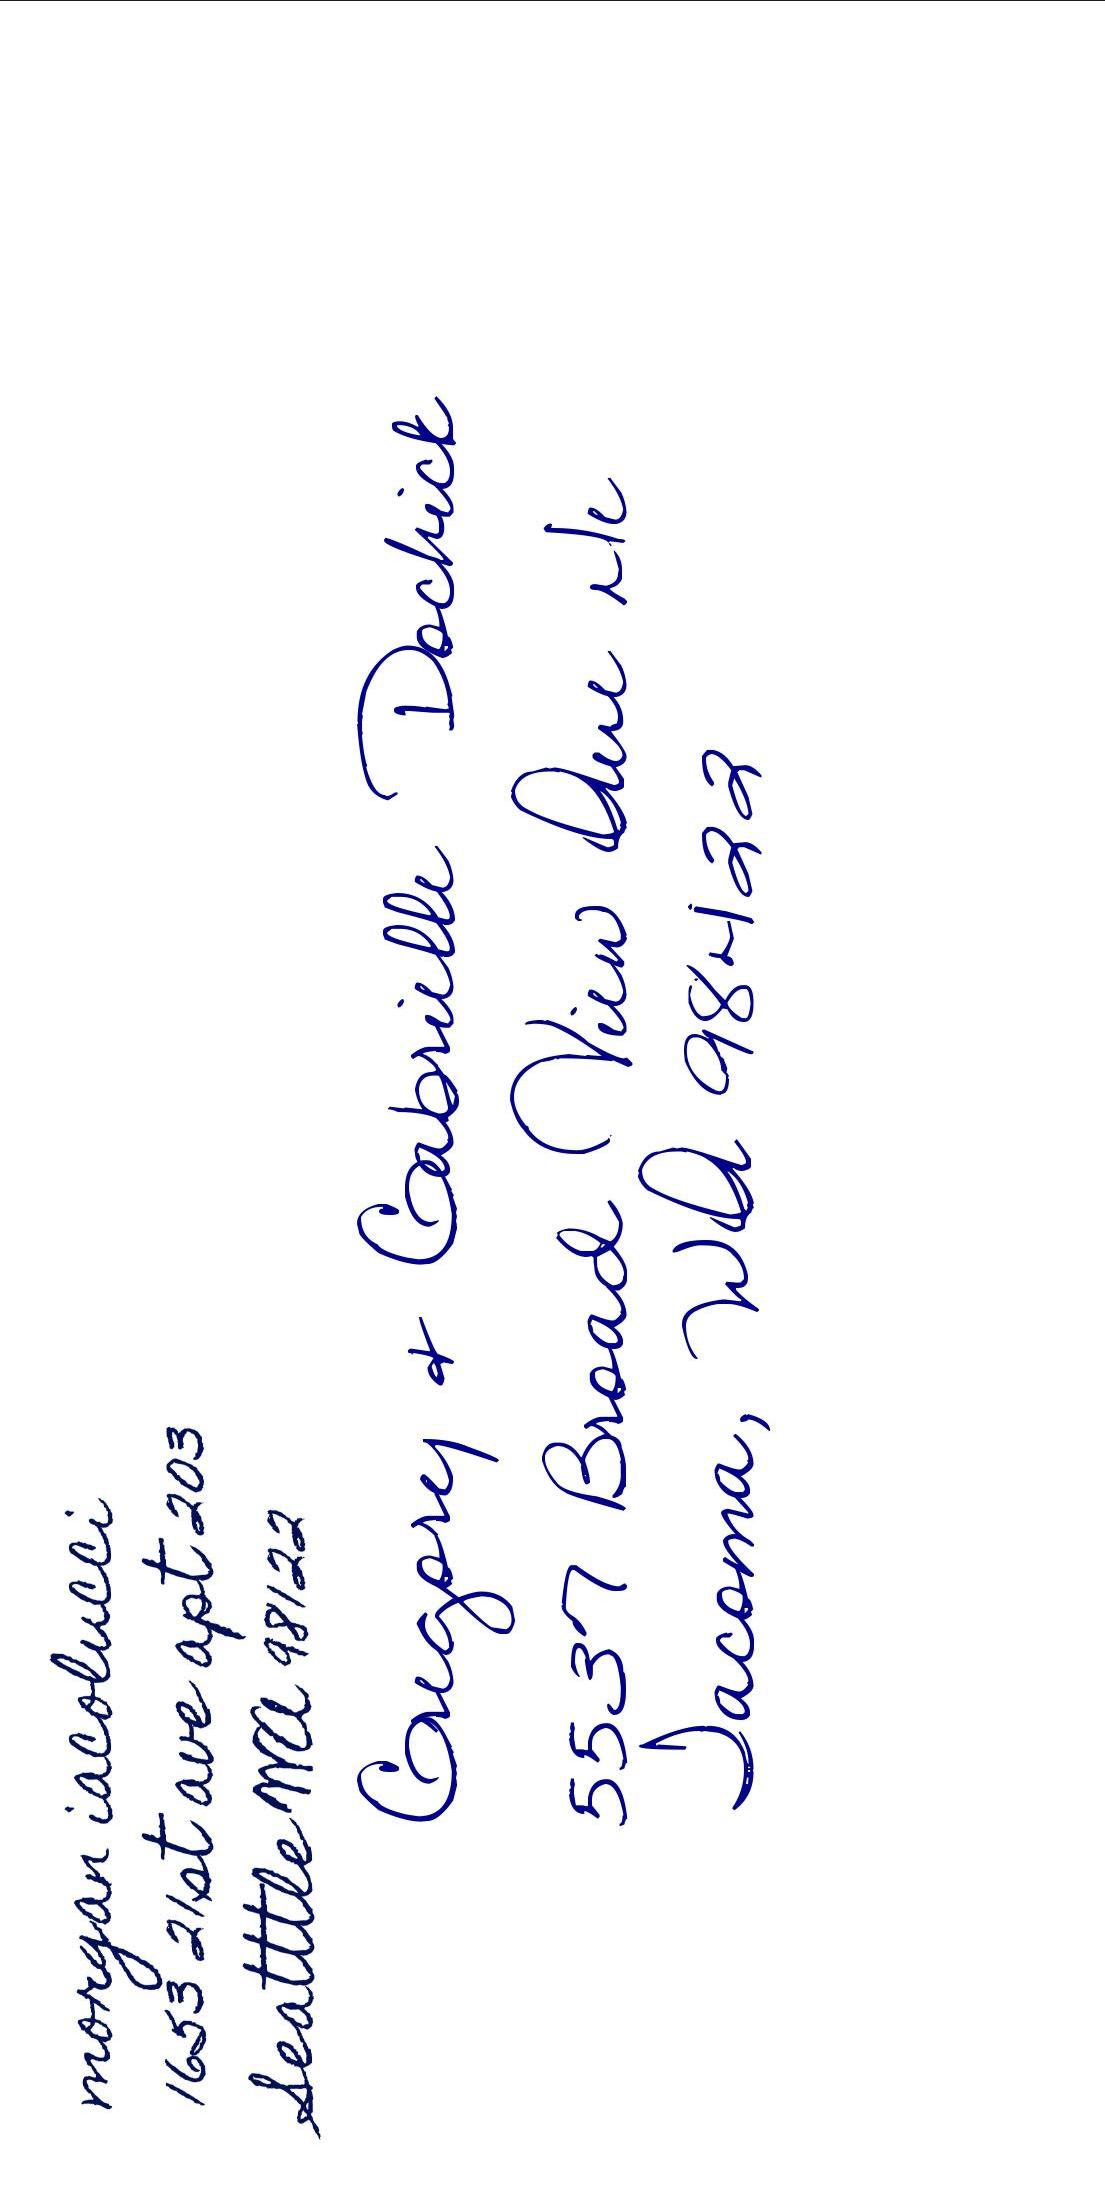 morgan iacolucci
1653 21st ave apt 203
Seattle WA 98122
Gregory & Gabrielle Dochick
5537 Broad View Ave NE
Tacoma, WA 98422